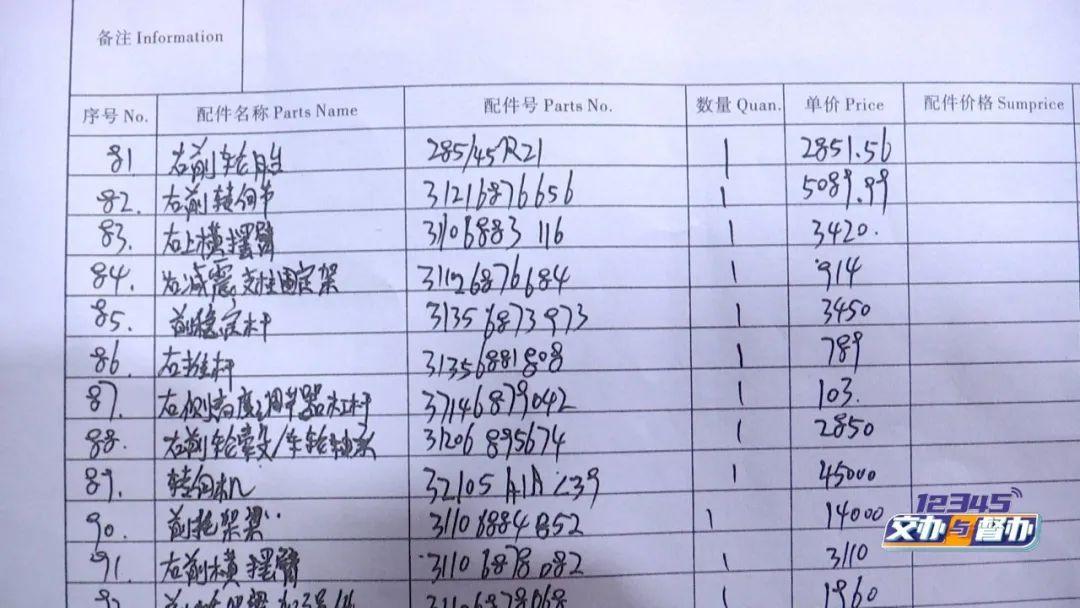 备注 Information
序号 No. 配件名称 Parts Name 配件号 Parts No. 数量 Quan. 单价 Price 配件价格 Sumprice
81 右前轮胎 285/45R21 1 2851.56
82. 右前转向节 31216876656 1 5089.99
83. 右上横摆臂 3106883 116 1 3420.
84. 右减震支柱固定架 31126876684 1 914
85. 前稳定杆 31356873973 1 3450
86 右推杆 31356881808 1 789
87. 右侧高度调节器杠杆 37146879042 1 103.
88. 右前轮毂/车轮轴承 31206895674 1 2850
89. 转向机 32105A1A239 1 45000
90. 前托架梁 31106884852 1 14000
91. 右前横摆臂 31106878082 1 3110
92 31106878068 1 1960
12345
交办与督办